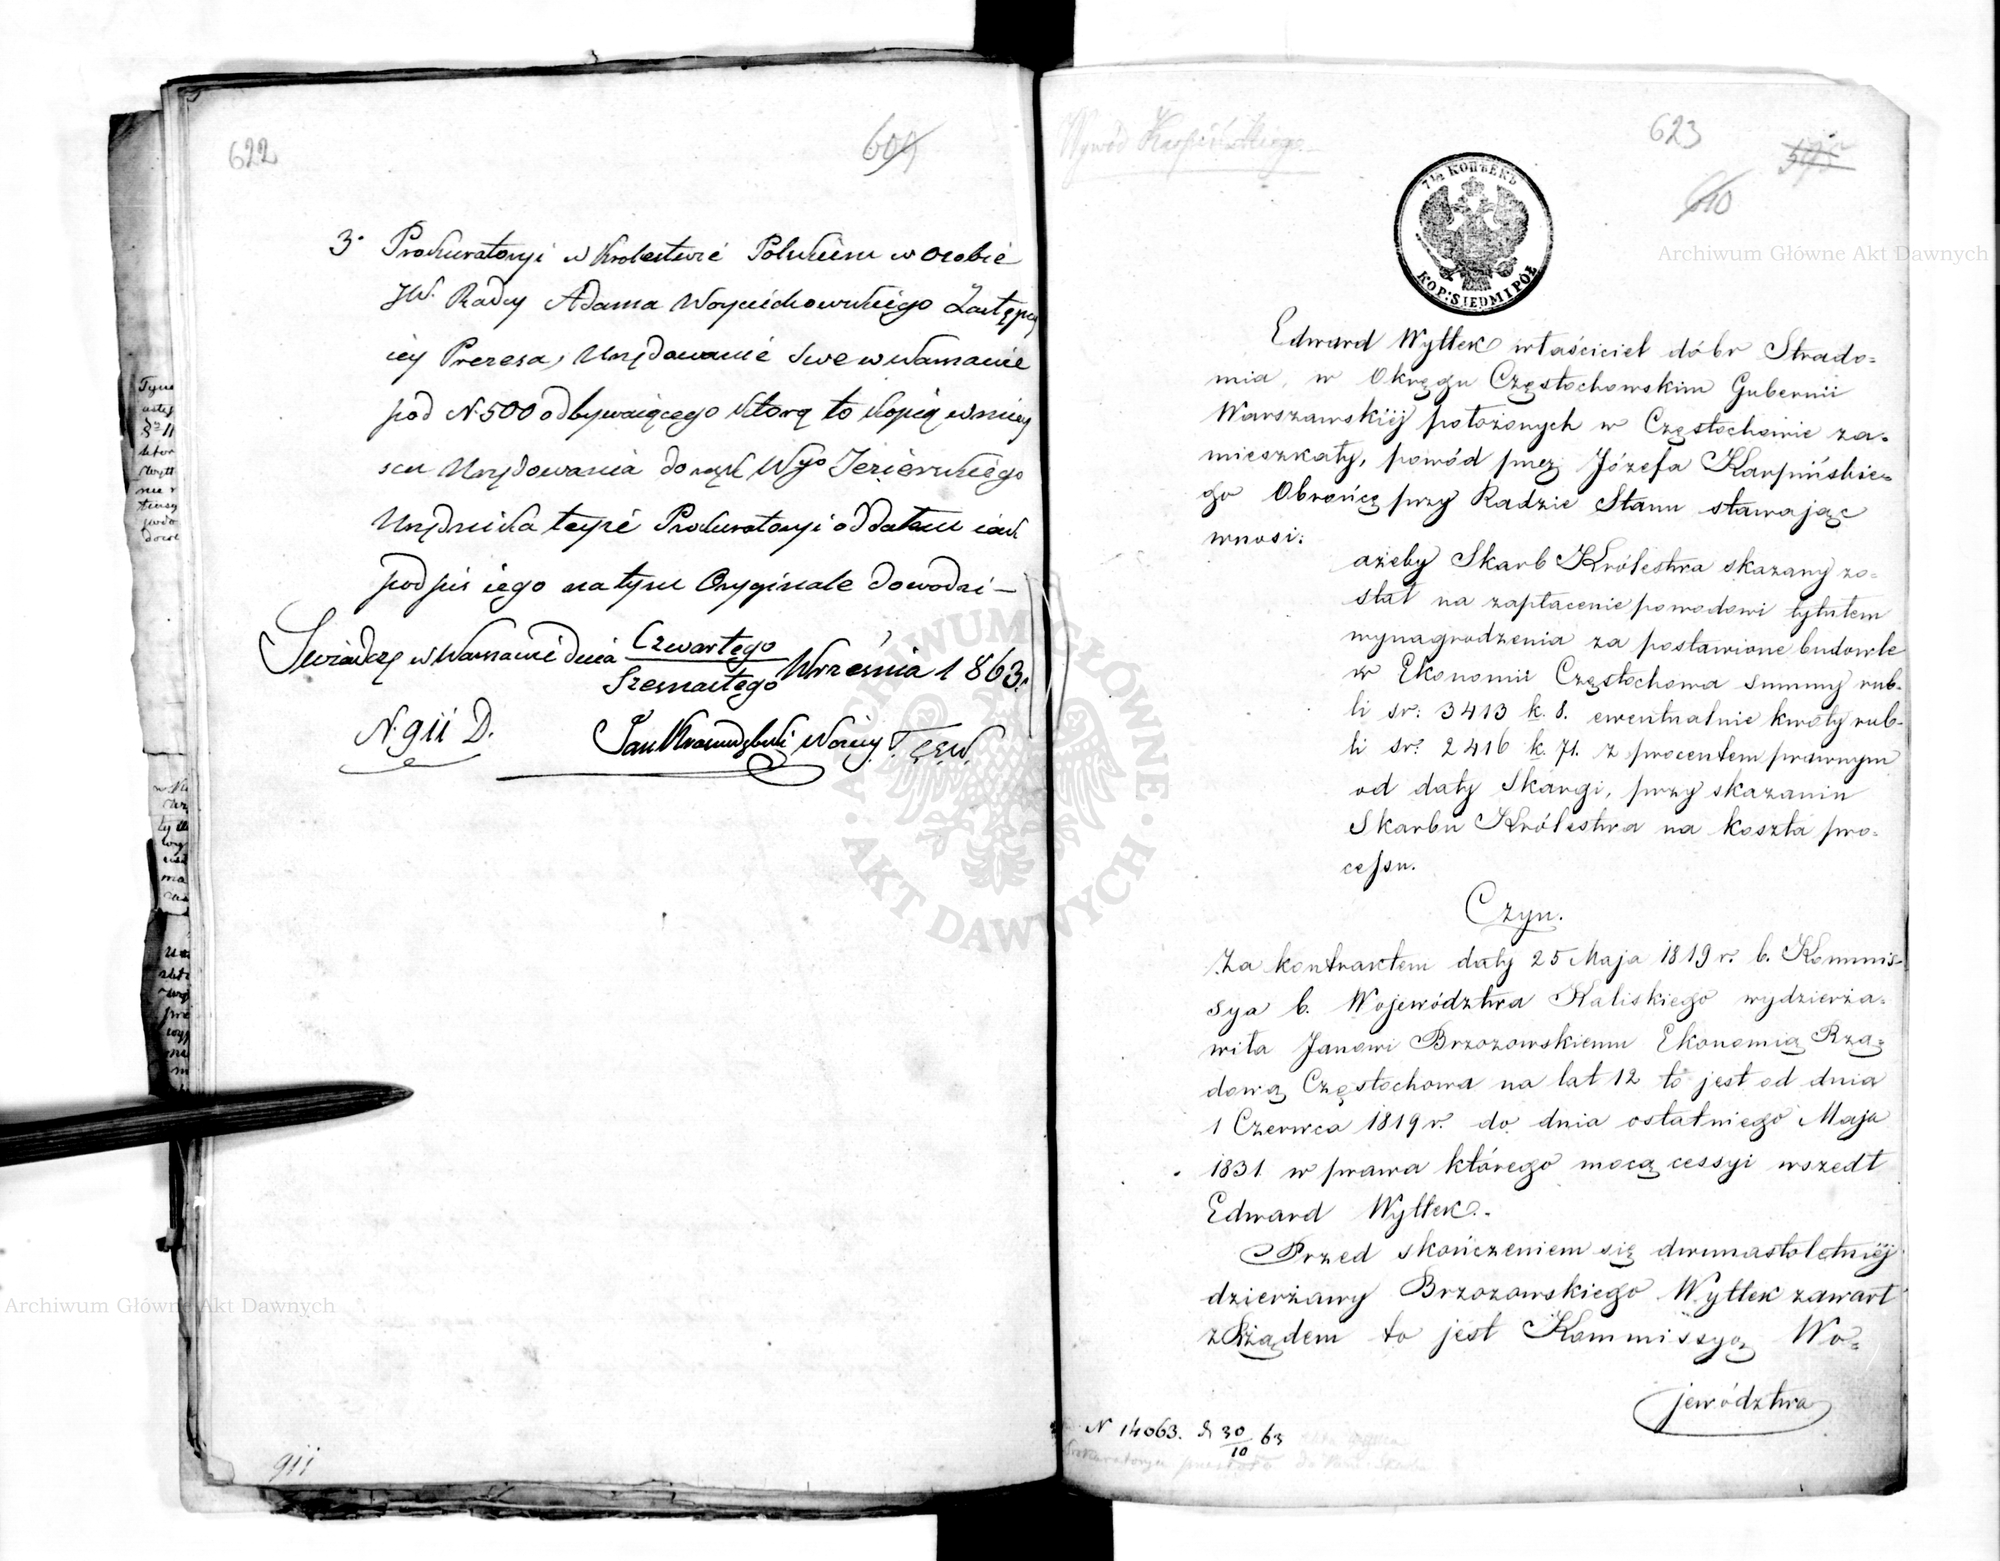 622
609
3° Prokuratoryi w Królestwie Polskiem w osobie
JW. Radcy Adama Woyciechowskiego Zastępcy
iey Prezesa, Urzędowanie swe w Warszawie
pod N 500 odbywaiącego którą to kopię w miey
scu Urzędowania do rąk Wgo Jezierskiego
Urzędnika teyże Prokuratoryi oddałem iak
podpis iego na tym Oryginale dowodzi —
Świadczę w Warszawie dnia Czwartego
Szesnastego Września 1863.
N. 911 D.
Woźny
911
Wywód Karpińskiego
623
610
7½ КОПѢЕКЪ
KOP: SIEDMIPÓŁ
Edward Wyttek właściciel dóbr Strado=
mia, w Okręgu Częstochowskim Gubernii
Warszawskiéj położonych w Częstochowie za=
mieszkały, powód przez Józefa Karpińskie=
go Obrońcę przy Radzie Stanu stawając
wnosi:
ażeby Skarb Królestwa skazany zo=
stał na zapłacenie powodowi tytułem
wynagrodzenia za postawione budowle
w Ekonomii Częstochowa summy rub=
li sr: 3413 k. 8. ewentualnie kwoty rub=
li sr: 2416 k. 71. z procentem prawnym
od daty Skargi, przy skazaniu
Skarbu Królestwa na koszta pro=
cessu.
Czyn.
Za kontraktem daty 25 Maja 1819 r. b. Kommis=
sya b. Województwa Kaliskiego wydzierża=
wiła Janowi Brzozowskiemu Ekonomią Rzą=
dową Częstochowa na lat 12 to jest od dnia
1 Czerwca 1819 r. do dnia ostatniego Maja
1831. w prawa którego mocą cessyi wszedł
Edward Wyttek.
Przed skończeniem się dwunastoletniéj
dzierżawy Brzozowskiego Wyttek zawarł
z Rządem to jest Kommissyą Wo=
jewództwa
N 14063. d 30/10 63
Archiwum Główne Akt Dawnych
Archiwum Główne Akt Dawnych
ARCHIWUM GŁÓWNE AKT DAWNYCH